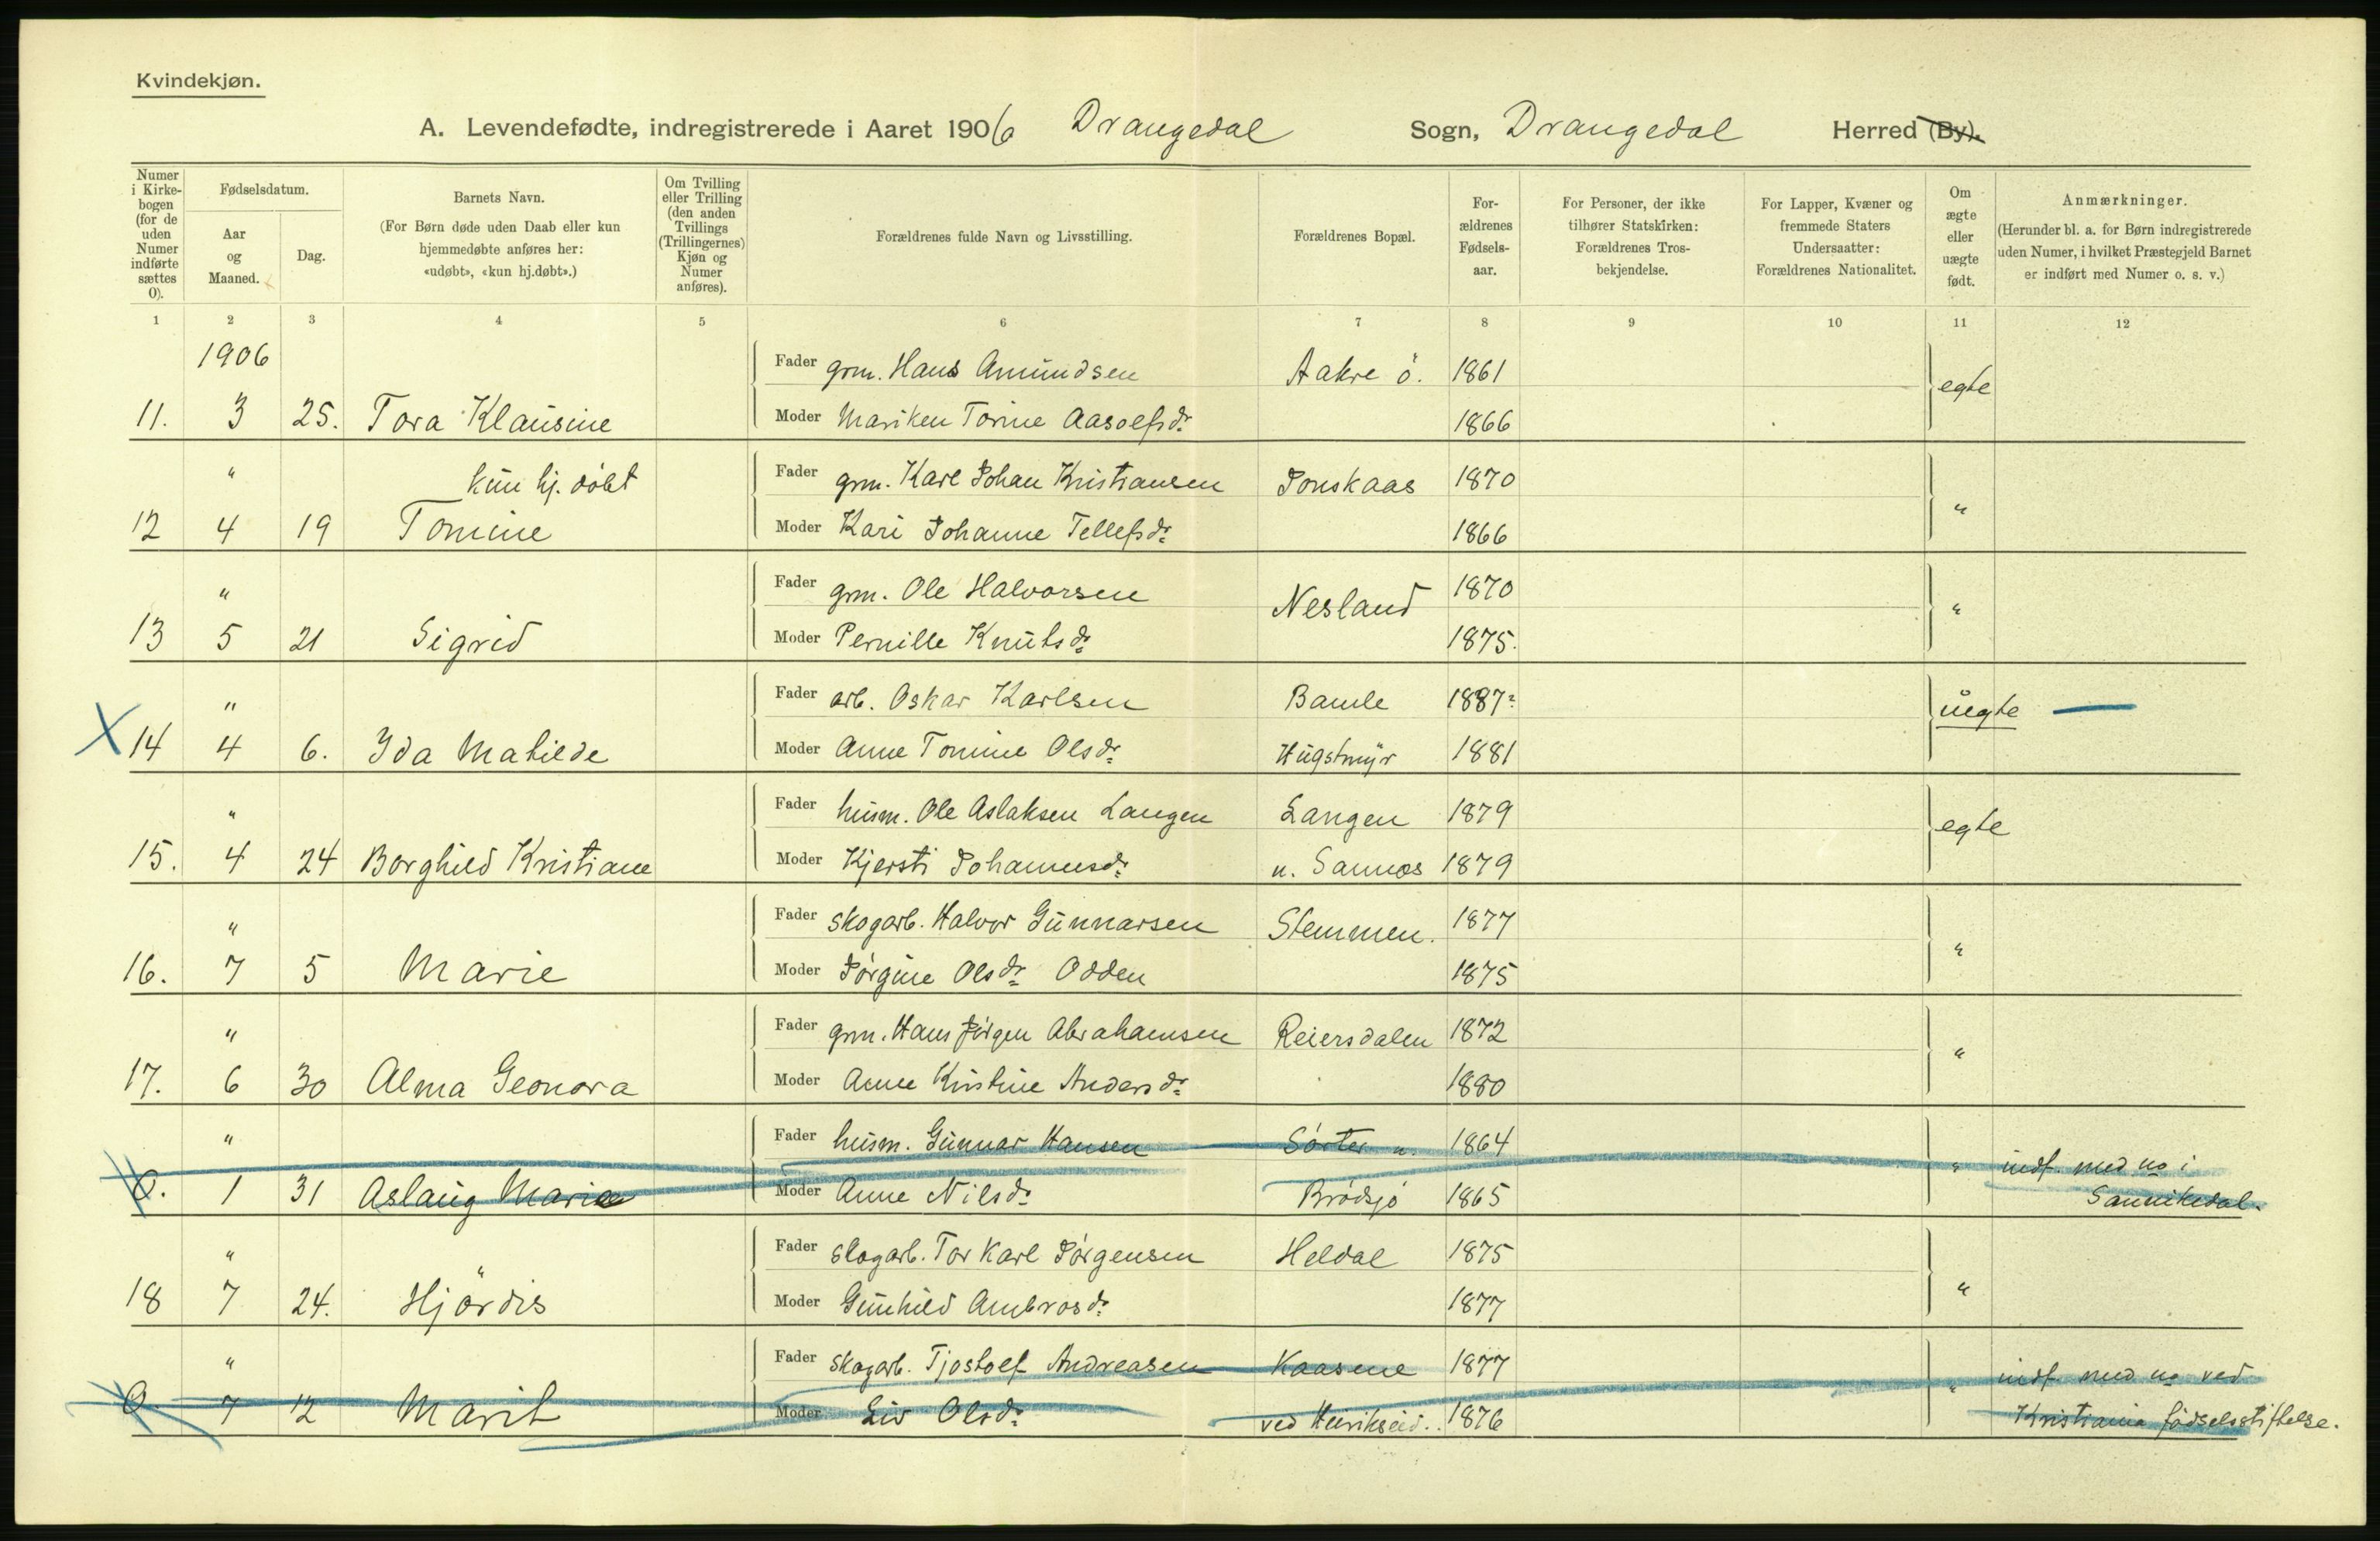 Kvindekjøn.
A. Levendefødte, indregistrerede i Aaret 1906 Drangedal Sogn, Drangedal Herred (By).
Numer i Kirkebogen (for de uden Numer indførte sættes 0).
Fødselsdatum.
Aar og Maaned.
Dag.
Barnets Navn.
(For Børn døde uden Daab eller kun hjemmedøbte anføres her: «udøbt», «kun hj.døbt».)
Om Tvilling eller Trilling (den anden Tvillings (Trillingernes) Kjøn og Numer anføres).
Forældrenes fulde Navn og Livsstilling.
Forældrenes Bopæl.
Forældrenes Fødselsaar.
For Personer, der ikke tilhører Statskirken: Forældrenes Trosbekjendelse.
For Lapper, Kvæner og fremmede Staters Undersaatter: Forældrenes Nationalitet.
Om ægte eller uægte født.
Anmærkninger.
(Herunder bl. a. for Børn indregistrerede uden Numer, i hvilket Præstegjeld Barnet er indført med Numer o. s. v.)
1 2 3 4 5 6 7 8 9 10 11 12
1906 Fader grm. Hans Amundsen Aakre ö. 1861 egte
11. 3 25. Tora Klausine Moder Mariken Torine Aasolfsdr. 1866
" kun hj. döbt Fader grm. Karl Johan Kristiansen Jonskaas 1870 "
12 4 19 Tomine Moder Kari Johanne Tellefsdr. 1866
" Fader grm. Ole Halvorsen Nesland 1870 "
13 5 21 Sigrid Moder Pernille Knutsdr. 1875.
" Fader arb. Oskar Karlsen Bamle 1887 uegte —
X 14 4 6. Ida Mathilde Moder Anne Tomine Olsdr. Hugstmyr 1881
" Fader husm. Ole Aslaksen Langen Langen 1879 egte
15. 4 24 Borghild Kristiane Moder Kjersti Johannesdr. u. Sannes 1879
" Fader skogarb. Halvor Gunnarsen Stemmen. 1877 "
16. 7 5 Marie Moder Jörgine Olsdr. Odden 1875
" Fader grm. Hans Jörgen Abrahamsen Reiersdalen 1872 "
17. 6 30 Alma Geonora Moder Anne Kristine Andersdr. 1880
" Fader husm. Gunnar Hansen Sörter u. 1864 " indf. med no i
0. 1 31 Aslaug Marie Moder Anne Nilsdr. Brödsjö 1865 Sannikedal.
" Fader skogarb. Tor Karl Jörgensen Heldal 1875 "
18 7 24. Hjördis Moder Gunhild Ambrosdr. 1877
" Fader skogarb. Tjostolf Andreasen Kaasene 1877 " indf. med no ved
0. 7 12 Marit Moder Liv Olsdr. ved Henrikseid. 1876 Kristiania födselsstiftelse.